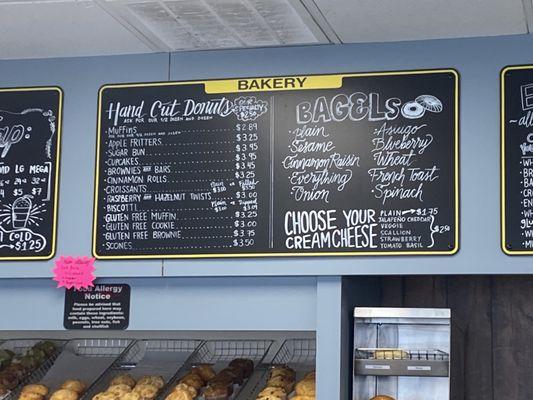 BAKERY
Hand Cut Donuts
ASK FOR OUR 1/2 DOZEN AND DOZEN
OUR
SPECIALTY
MUFFINS $2.89
Apple Fritters $3.25
Sugar Bun $3.95
Cupcakes $3.45
Brownies and Bars $3.95
Cinnamon Rolls $3.25
Croissants Plain
Raspberry and Hazelnut Twists $3.00
Biscotti Plain
Gluten Free Muffin $3.25
Gluten Free Cookie $3.00
Gluten Free Brownie $3.75
Scones $3.50
BAGELS
plain
Sesame
Cinnamon Raisin
Everything
Onion
Asiago
Blueberry
Wheat
French Toast
Spinach
CHOOSE YOUR
CREAM CHEESE
PLAIN $1.75
JALAPENO CHEDDAR
VEGGIE
SCALLION
STRAWBERRY
TOMATO BASIL
$2.50
LG MEGA
$4 $5 $7
COLD
$1.25
Food Allergy
Notice
Please be advised that
food prepared here may
contain these ingredients:
milk, eggs, wheat, soybean,
peanuts, tree nuts, fish
and shellfish